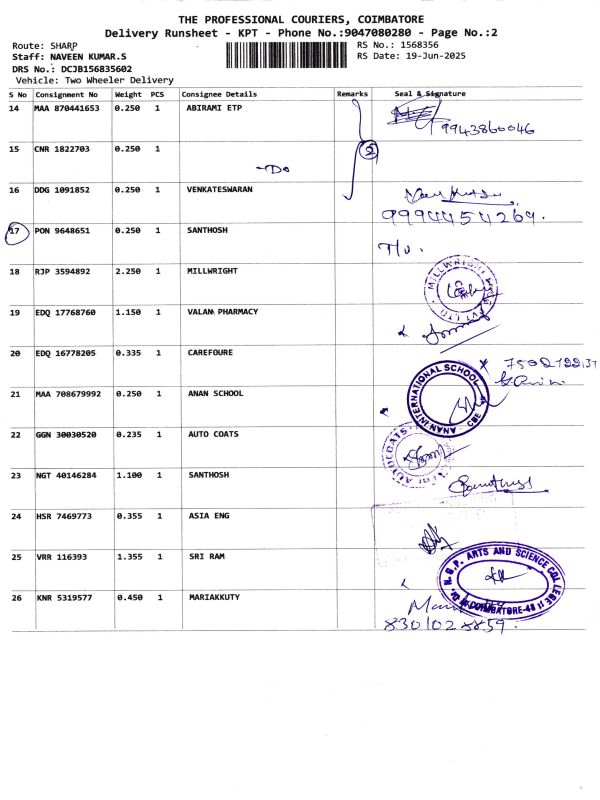 THE PROFESSIONAL COURIERS, COIMBATORE
Delivery Runsheet - KPT - Phone No.:9047080280 - Page No.:2
Route: SHARP
RS No.: 1568356
Staff: NAVEEN KUMAR.S
RS Date: 19-Jun-2025
DRS No.: DCJB156835602
Vehicle: Two Wheeler Delivery
S No Consignment No Weight PCS Consignee Details Remarks Seal & Signature
14 MAA 870441653 0.250 1 ABIRAMI ETP
9943860046
15 CNR 1822703 0.250 1
-Do
16 DDG 1091852 0.250 1 VENKATESWARAN
9994454269.
17 PON 9648651 0.250 1 SANTHOSH
T/o.
18 RJP 3594892 2.250 1 MILLWRIGHT
MILLWRIGHT PVT LTD
19 EDQ 17768760 1.150 1 VALAM PHARMACY
20 EDQ 16778205 0.335 1 CAREFOURE
21 MAA 708679992 0.250 1 ANAN SCHOOL
ANAN INTERNATIONAL SCHOOL CBE
22 GGN 30030520 0.235 1 AUTO COATS
AUTOCOATS
23 NGT 40146284 1.100 1 SANTHOSH
24 HSR 7469773 0.355 1 ASIA ENG
25 VRR 116393 1.355 1 SRI RAM
Dr. N.G.P. ARTS AND SCIENCE COLLEGE
COIMBATORE-48
26 KNR 5319577 0.450 1 MARIAKKUTY
8301028859.